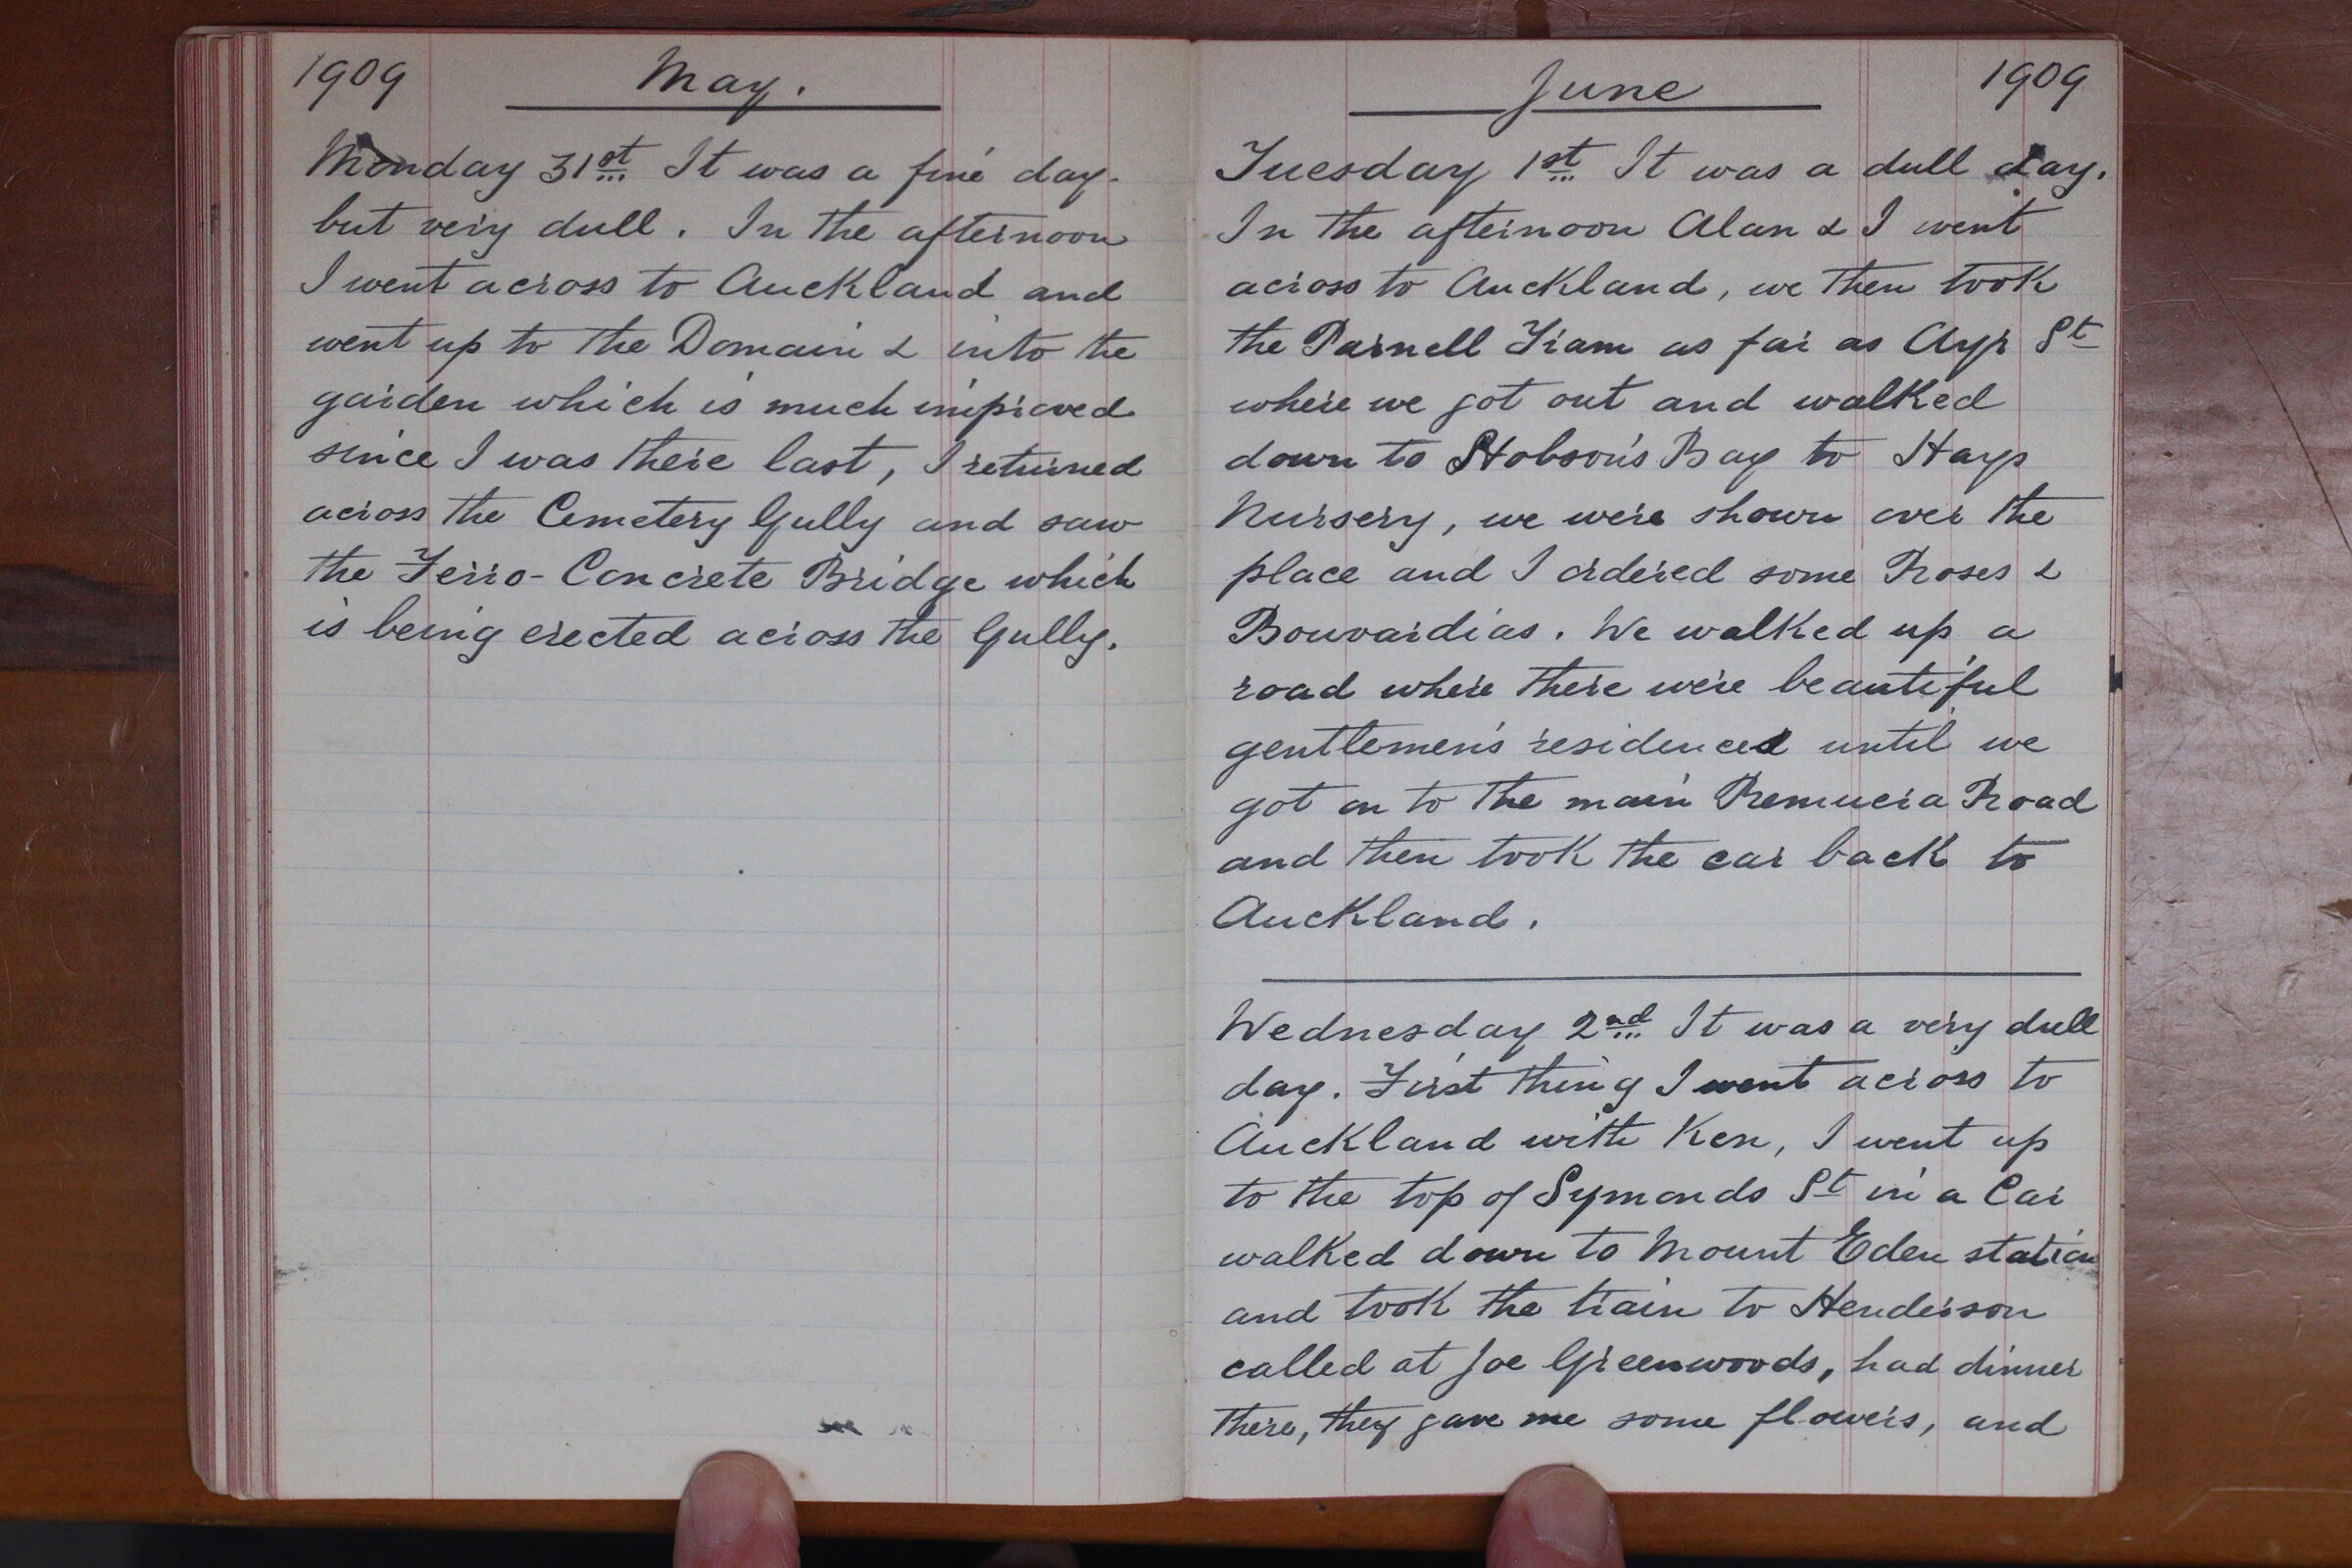 1909 May.
Monday 31st It was a fine day.
but very dull. In the afternoon
I went across to Auckland and
went up to the Domain & into the
garden which is much improved
since I was there last, I returned
across the Cemetery Gully and saw
the Ferro-Concrete Bridge which
is being erected across the Gully.
June 1909
Tuesday 1st It was a dull day.
In the afternoon Alan & I went
across to Auckland, we then took
the Parnell Tram as far as Ayr St
where we got out and walked
down to Hobson's Bay to Hays
Nursery, we were shown over the
place and I ordered some Roses &
Bouvardias. We walked up a
road where there were beautiful
gentlemen's residences until we
got on to the main Remuera Road
and then took the car back to
Auckland.
Wednesday 2nd It was a very dull
day. First thing I went across to
Auckland with Ken, I went up
to the top of Symonds St in a Car
walked down to Mount Eden station
and took the train to Henderson
called at Joe Greenwoods, had dinner
there, they gave me some flowers, and